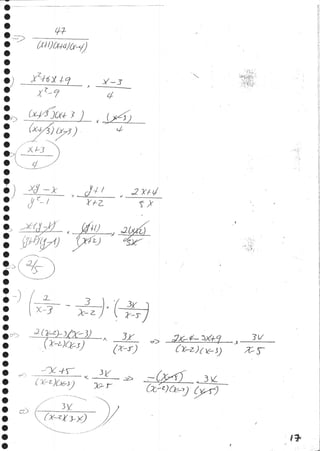 => 42 / (x+1)(x+4)(x-4)
) x²+6x+9 / x²-9 · x-3 / 4
=> (x+3)(x+3) / (x+3)(x-3) · (x-3) / 4
x+3 / 4
) xy-x / y²-1 · y+1 / x+2 · 2x+4 / 5x
x(y-1) / (y+1)(y-1) · (y+1) / (x+2) · 2(x+2) / 5x
=> 2/5
-) ( 2 / x-3 - 3 / x-2 ) · ( 3x / x-5 )
=> 2(x-2)-3(x-3) / (x-2)(x-3) × 3x / (x-5) => 2x-4-3x+9 / (x-2)(x-3) · 3x / x-5
=> -x+5 / (x-2)(x-3) × 3x / x-5 => -(x-5) / (x-2)(x-3) · 3x / (x-5)
=> 3x / (x-2)(3-x)
17